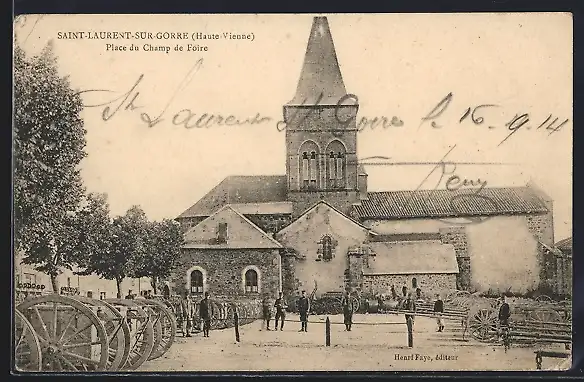 SAINT-LAURENT-SUR-GORRE (Haute-Vienne)
Place du Champ de Foire
St Laurent s/ Gorre le 16.9.14
Remy
Henri Faye, éditeur